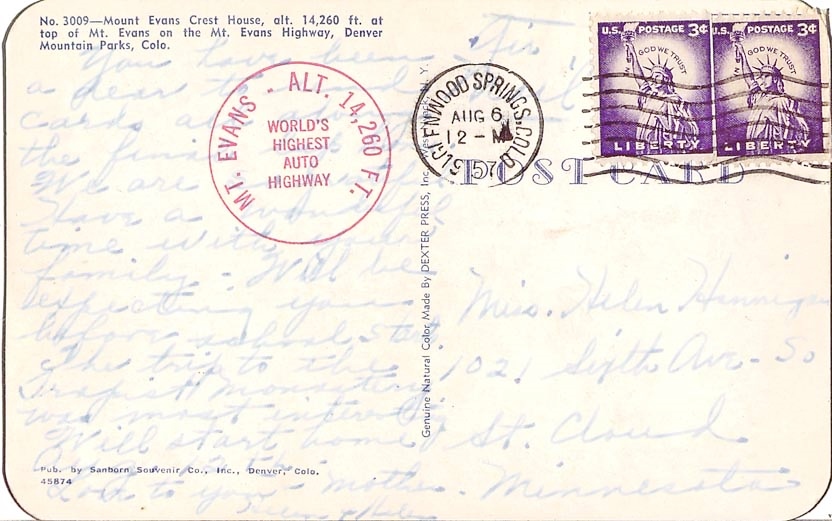 No. 3009—Mount Evans Crest House, alt. 14,260 ft. at
top of Mt. Evans on the Mt. Evans Highway, Denver
Mountain Parks, Colo.
You have been
a dear to
cards
the
We are
have a wonderful
time with your
family - Will be
expecting you
before school start.
The trip to the
Trapist monastery
was most
Will start home
Love to you - Mother -
Pub. by Sanborn Souvenir Co., Inc., Denver, Colo.
45874
MT. EVANS - ALT. 14,260 FT.
WORLD'S
HIGHEST
AUTO
HIGHWAY
Genuine Natural Color Made By DEXTER PRESS, Inc., West Nyack, N. Y.
GLENWOOD SPRINGS, COLO.
AUG 6
12 - M
1957
U.S. POSTAGE 3¢
IN GOD WE TRUST
LIBERTY
U.S. POSTAGE 3¢
IN GOD WE TRUST
LIBERTY
POST CARD
Air
Miss. Helen Hannigan
1021 Sixth Ave - So
St. Cloud
Minnesota